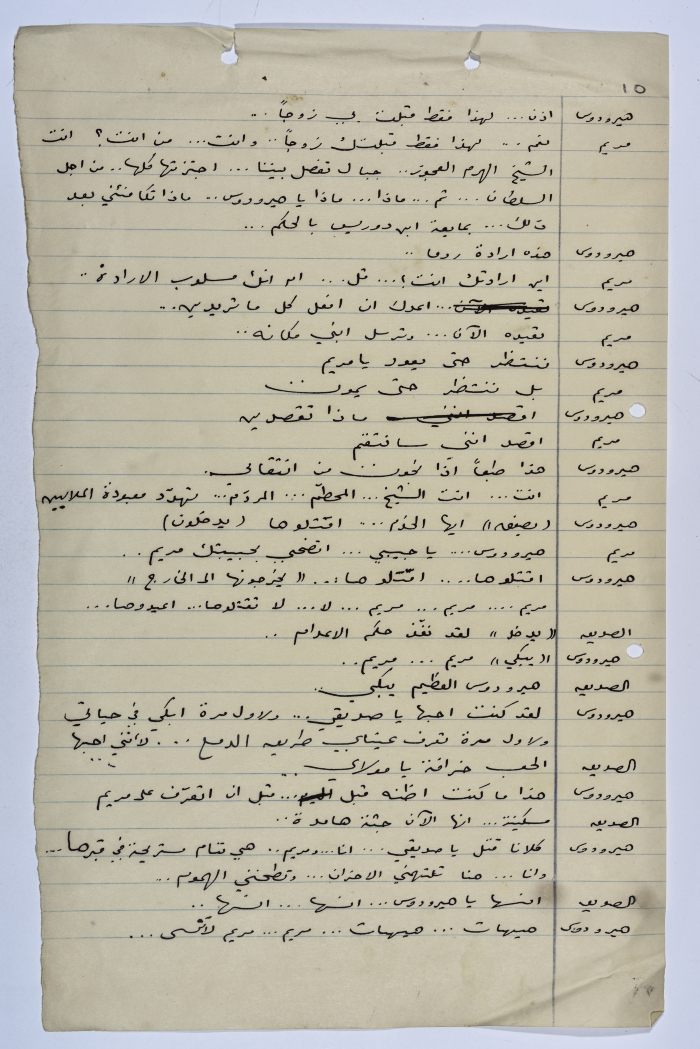 ١٥
هيرودوس اذن... لهذا فقط قبلت بي زوجاً..
مريم نعم... لهذا فقط قبلتك زوجاً.. وانت... من انت؟ انت
الشيخ الهرم العجوز.. جبال تفصل بيننا... اجتزتها كلها.. من اجل
السلطان... ثم... ماذا... ماذا يا هيرودوس.. ماذا تكافئني بعد
ذلك... بمبايعة ابن دوريس بالحكم...
هيرودوس هذه ارادة روما..
مريم اين ارادتك انت؟... قل... ام انك مسلوب الارادة..
هيرودوس اعدك ان افعل كل ما تريدين..
مريم تعيده الآن... وترسل ابني مكانه..
هيرودوس ننتظر حتى يعود يا مريم
مريم بل ننتظر حتى يموت..
هيرودوس ماذا تقصدين
مريم اقصد انني سأنتقم
هيرودوس هذا طبعاً اذا نجوت من انتقامي.
مريم انت... انت الشيخ... المحطم... تهدد معبودة الملايين
هيرودوس (يصفق) ايها الخدم... اقتلوها (يدخلون)
مريم هيرودوس... يا حبيبي... اتضحي بحبيبتك مريم..
هيرودوس اقتلوها... اقتلوها... "يخرجونها الى الخارج"
مريم... مريم... مريم... لا... لا تقتلوها... اعيدوها...
الصديق "يدخل" لقد نفّذ حكم الاعدام..
هيرودوس "يبكي" مريم... مريم..
الصديق هيرودوس العظيم يبكي..
هيرودوس لقد كنت احبها يا صديقي... ولاول مرة ابكي في حياتي
ولاول مرة تعرف عيناي طريق الدمع... لأنني احبها
الصديق الحب خرافة يا مولاي..
هيرودوس هذا ما كنت اظنه قبل... قبل ان اتعرّف على مريم
الصديق مسكينة... انها الآن جثة هامدة..
هيرودوس كلانا قتل يا صديقي... انا.. ومريم.. هي تنام مستريحة في قبرها...
وانا... هنا تلتهمني الاحزان... وتطحنني الهموم..
الصديق انسها يا هيرودوس... انسها... انسها..
هيرودوس هيهات... هيهات... مريم... مريم لا تُنسى...